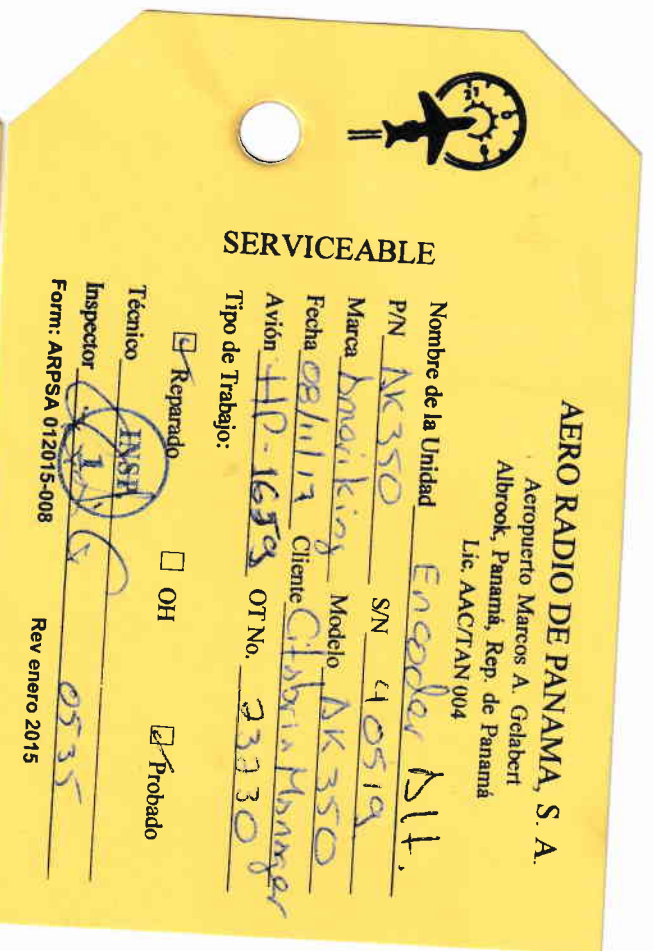 AERO RADIO DE PANAMA, S. A.
Aeropuerto Marcos A. Gelabert
Albrook, Panamá, Rep. de Panamá
Lic. AAC/TAN 004
SERVICEABLE
Nombre de la Unidad Encoder Alt.
P/N AK350 S/N 40519
Marca Ameriking Modelo AK350
Fecha 08/11/17 Cliente Citabria Manager
Avión HP-1659 OT No.
Tipo de Trabajo:
Reparado OH Probado
Técnico
INSP
1
Inspector 0535
Form: ARPSA 012015-008 Rev enero 2015